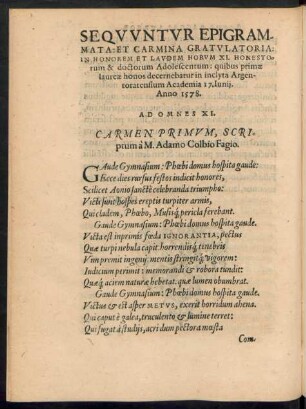 SEQVVNTVR EPIGRAM-
MATA: ET CARMINA GRATVLATORIA:
IN HONOREM ET LAVDEM HORVM XI. HONESTO-
rum & doctorum Adolescentum: quibus primæ
laureæ honos decernebatur in inclyta Argen-
toratensium Academia 17. Iunij.
Anno 1578.
AD OMNES XI.
CARMEN PRIMVM, SCRI-
ptum à M. Adamo Colbio Fagio.
GAude Gymnasium: Phœbi domus hospita gaude:
Ecce dies rursus festos inducit honores,
Scilicet Aonio sanctè celebranda triumpho:
Victi sunt hospes ereptis turpiter armis,
Qui cladem, Phœbo, Musisq́; pericla ferebant.
Gaude Gymnasium: Phœbi domus hospita gaude.
Victa est inprimis fœda IGNORANTIA, pectus
Quæ turpi nebula capit: horrendisq́; tenebris
Vim premit ingenij: mentis stringitq́; vigorem:
Indicium perimit: memorandi & robora tundit:
Quæq́; aciem naturæ hebetat. quæ lumen obumbrat.
Gaude Gymnasium: Phœbi domus hospita gaude.
Victus & est asper METVS, exerit horridum ahena.
Qui caput è galea, truculento & lumine terret:
Qui fugat à studijs, acri dum pectora mæsta
Com-